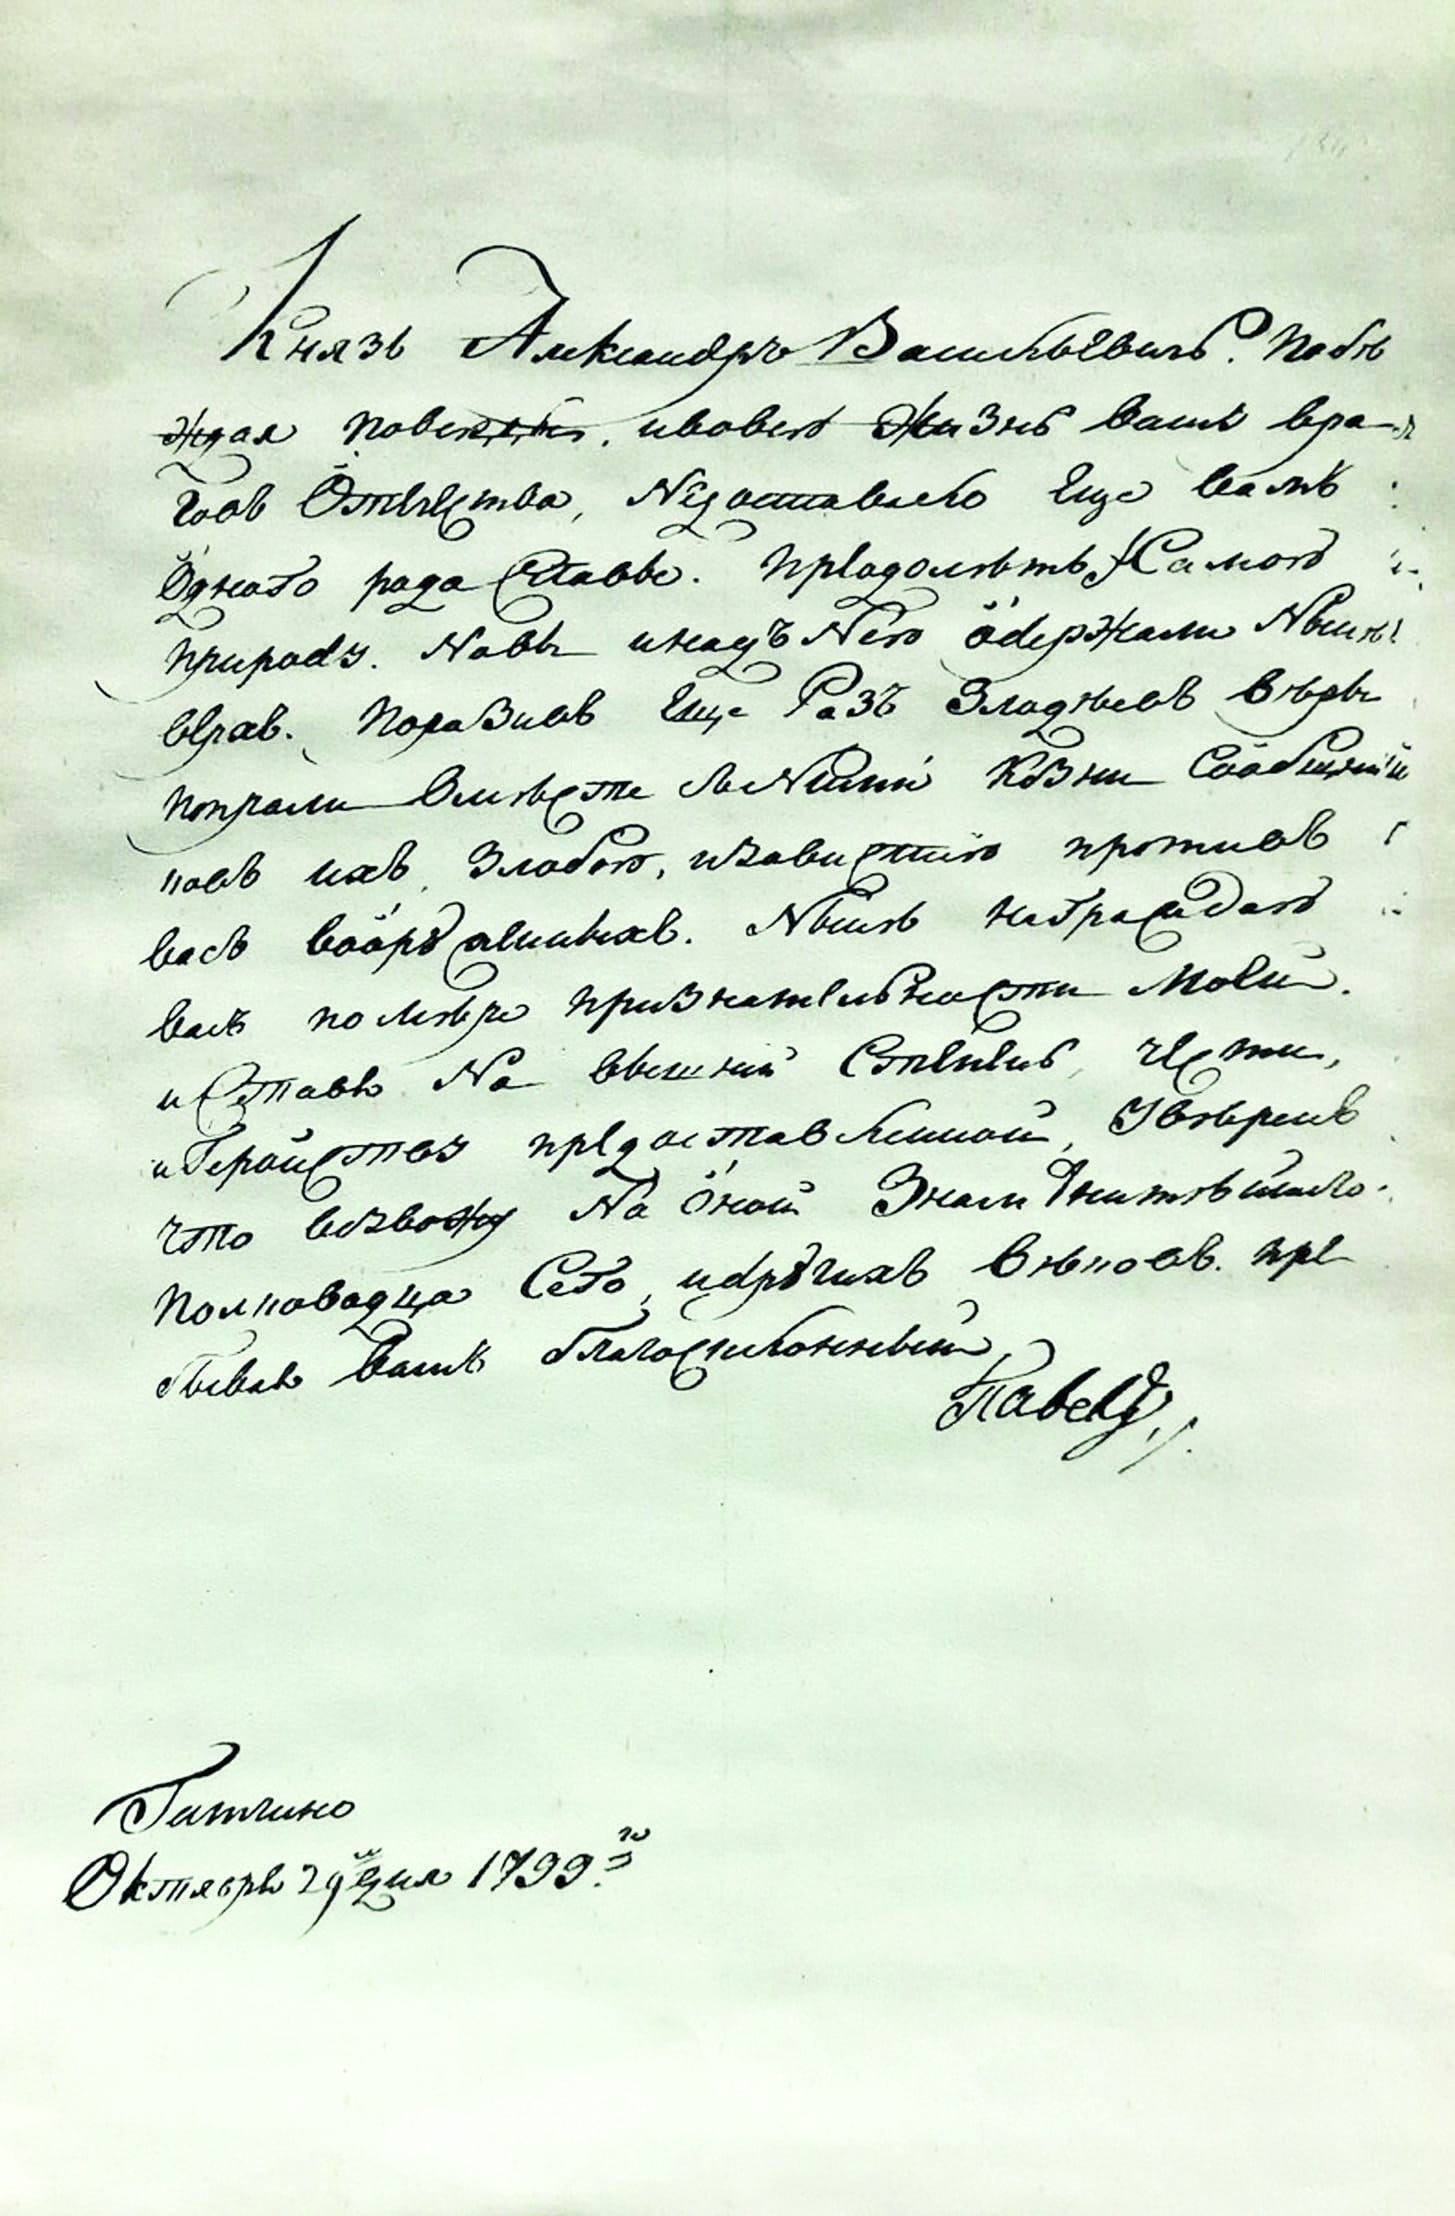 Князь Александръ Васильевичь. Побѣ
ждая повсюду, и во всю жизнь вашу вра
говъ Отечества, Недоставало Еще вамъ
Однаго рода Славы. преодолѣть и Самою
природу. Но Вы и надъ Нею одержали Нынѣ
верхъ. поразивъ Еще Разъ Злодѣевъ Вѣры
попрали Вмѣсте съ Ними Козни Сообщни
ковъ ихъ, Злобою, и Завистию противъ
васъ вооруженныхъ. Нынѣ награждаю
васъ по мѣре признательности Моей.
и Ставя На вышний Степень, чести,
и Геройству предоставленной, Увѣренъ
что возвожу На Оной Знаменитѣйшаго
полководца Сего, и другихъ Вѣковъ. пре
бываю Вамъ благосклонный
Павелъ.
Гатчино
Октября 29 дня 1799 го